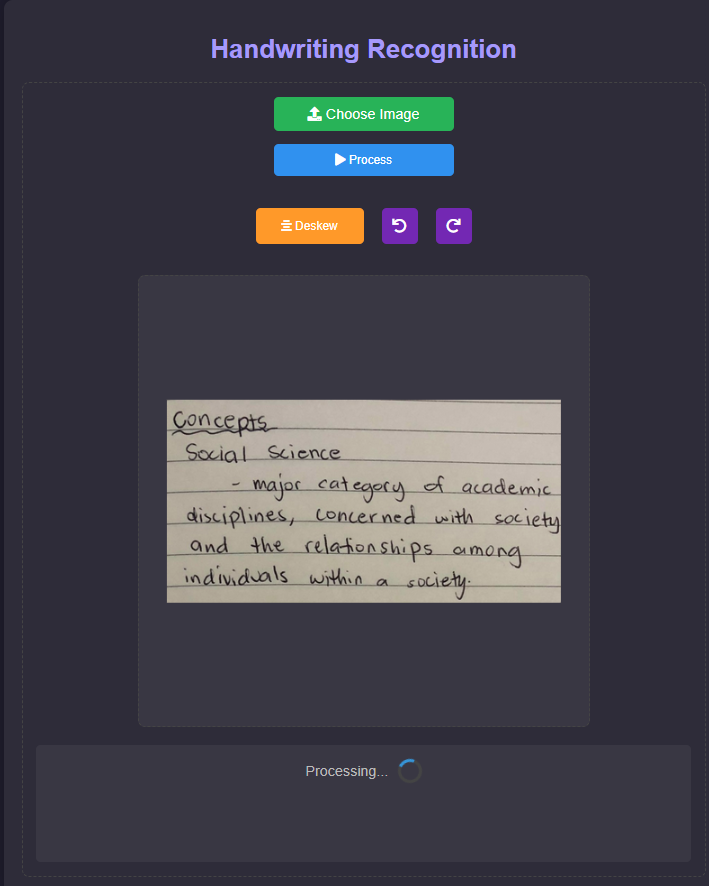 Handwriting Recognition
Choose Image
Process
Deskew
Concepts
Social Science
- major category of academic
disciplines, concerned with society
and the relationships among
individuals within a society.
Processing...